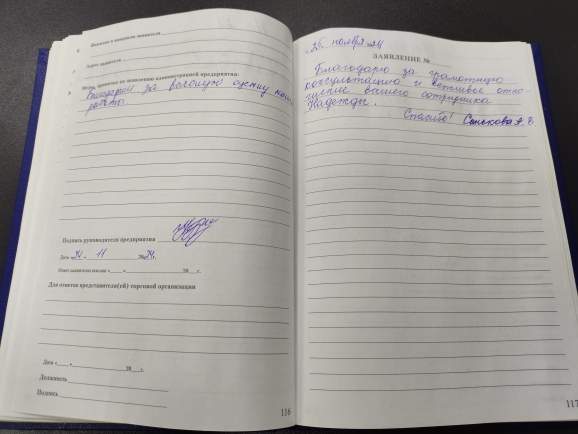 6 Фамилия и инициалы заявителя
7 Адрес заявителя
Меры, принятые по заявлению администрацией предприятия:
Благодарим за высокую оценку нашей
работы.
Подпись руководителя предприятия
Дата 24. 11 2024г.
Ответ заявителю послан « » 20 г.
Для отметок представителя(ей) торговой организации
Дата « » 20 г.
Должность
Подпись
116
«25» ноября 24
ЗАЯВЛЕНИЕ №
Благодарю за грамотную
консультацию и вежливое отно
шение вашего сотрудника
Надежды.
Спасибо!
117